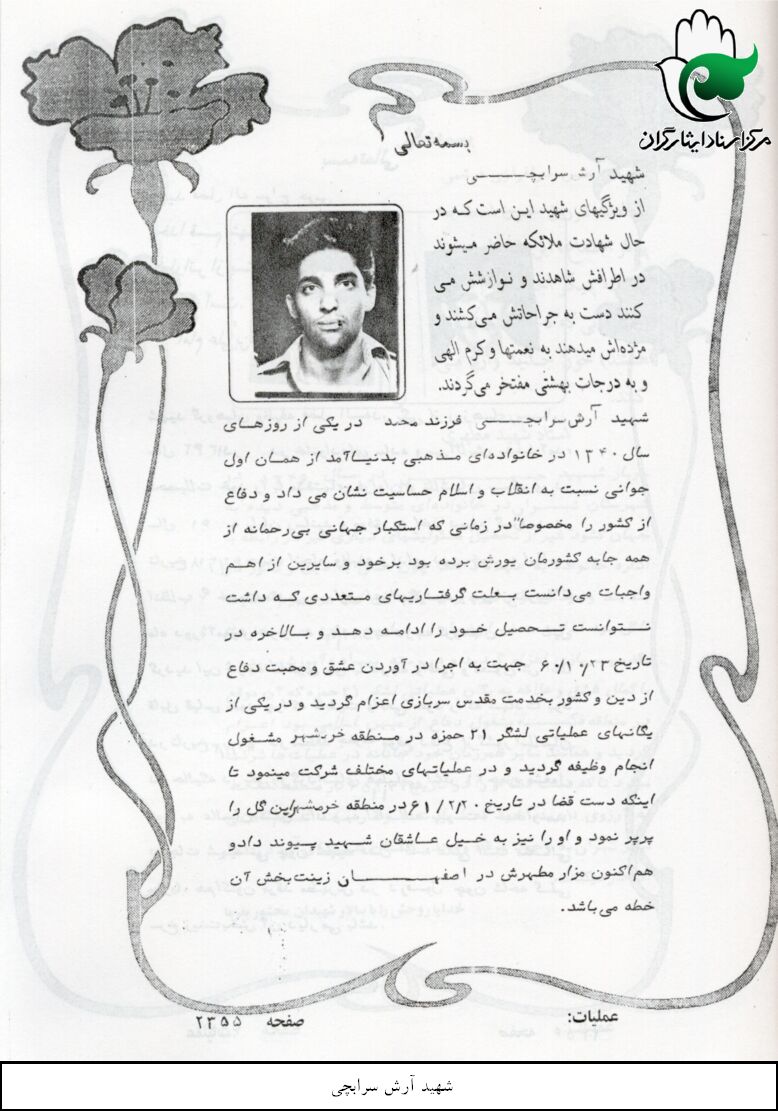 مرکز اسناد ایثارگران
بسمه تعالی
شهید آرش سرابچـــــی
از ویژگیهای شهید این است که در
حال شهادت ملائکه حاضر میشوند
در اطرافش شاهدند و نوازشش می
کنند دست به جراحاتش می‌کشند و
مژده‌اش میدهند به نعمتها و کرم الهی
و به درجات بهشتی مفتخر می‌گردند.
شهید آرش سرابچـــــی فرزند محمد در یکی از روزهـای
سال ۱۳۴۰ در خانواده‌ای مـذهبی بدنیـاآمد از همـان اول
جوانی نسبت به انقلاب و اسلام حساسیت نشان می داد و دفاع
از کشور را مخصوصا"در زمانی که استکبار جهانی بی‌رحمانه از
همه جابه کشورمان یورش برده بود برخود و سایرین از اهـم
واجبات می‌دانست بـعلت گرفتـاریهای متـعددی کـه داشت
نـتوانست تـحصیل خـود را ادامـه دهـد و بـالاخره در
تاریخ ۶۰/۱۰/۲۳ جهت به اجرا در آوردن عشق و محبت دفاع
از دین و کشور بخدمت مقدس سربازی اعزام گردید و در یکی از
یگانهای عملیاتی لشگر ۲۱ حمزه در مـنطقه خرمشهر مشـغول
انجام وظیفه گردید و در عملیاتهای مختلف شرکت مینمود تا
اینکه دست قضا در تاریخ ۶۱/۲/۲۰در منطقه خرمشهراین گل را
پرپر نمود و او را نیز به خـیل عـاشقان شـهید پـیوند دادو
هم‌اکنون مزار مطهرش در اصفهـــــان زینت‌بخش آن
خطه می‌باشد.
عملیات:
صفحه ۲۳۵۵
شهید آرش سرابچی